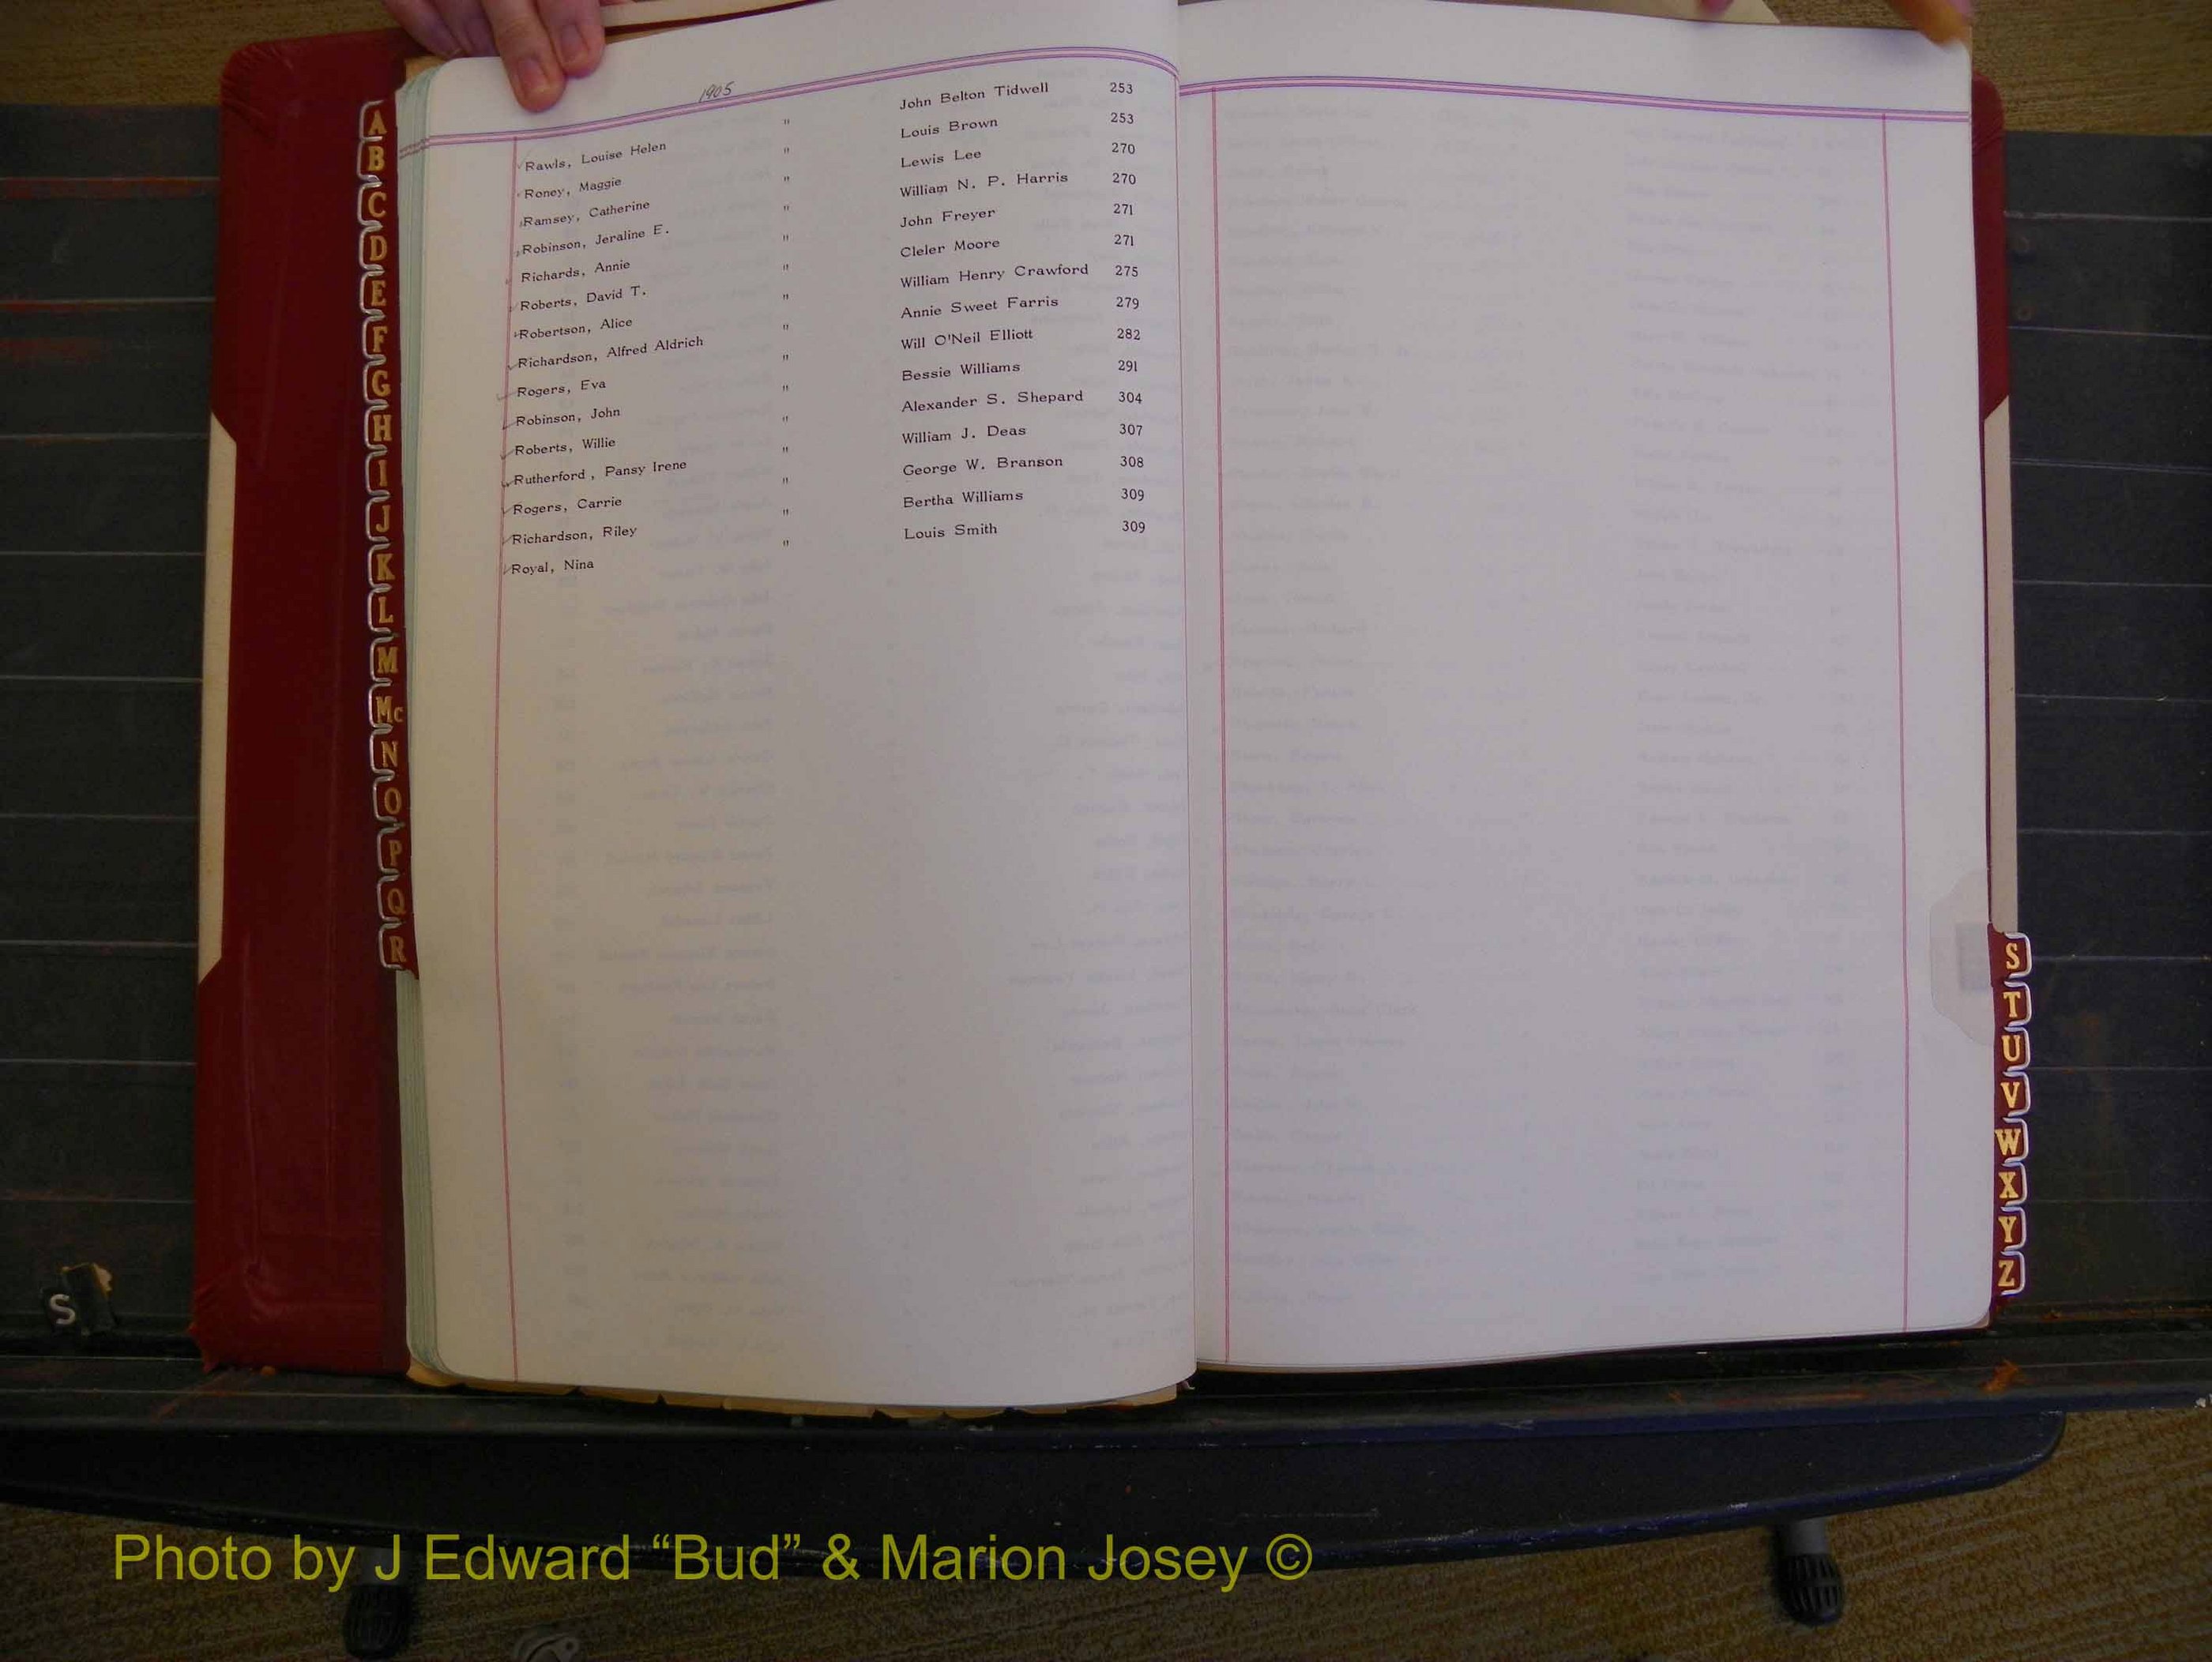 1905
Rawls, Louise Helen " John Belton Tidwell 253
Roney, Maggie " Louis Brown 253
Ramsey, Catherine " Lewis Lee 270
Robinson, Jeraline E. " William N. P. Harris 270
Richards, Annie " John Freyer 271
Roberts, David T. " Cleler Moore 271
Robertson, Alice " William Henry Crawford 275
Richardson, Alfred Aldrich " Annie Sweet Farris 279
Rogers, Eva " Will O'Neil Elliott 282
Robinson, John " Bessie Williams 291
Roberts, Willie " Alexander S. Shepard 304
Rutherford, Pansy Irene " William J. Deas 307
Rogers, Carrie " George W. Branson 308
Richardson, Riley " Bertha Williams 309
Royal, Nina " Louis Smith 309
A
B
C
D
E
F
G
H
I
J
K
L
M
Mc
N
O
P
Q
R
S
T
U
V
W
X
Y
Z
S
Photo by J Edward “Bud” & Marion Josey ©